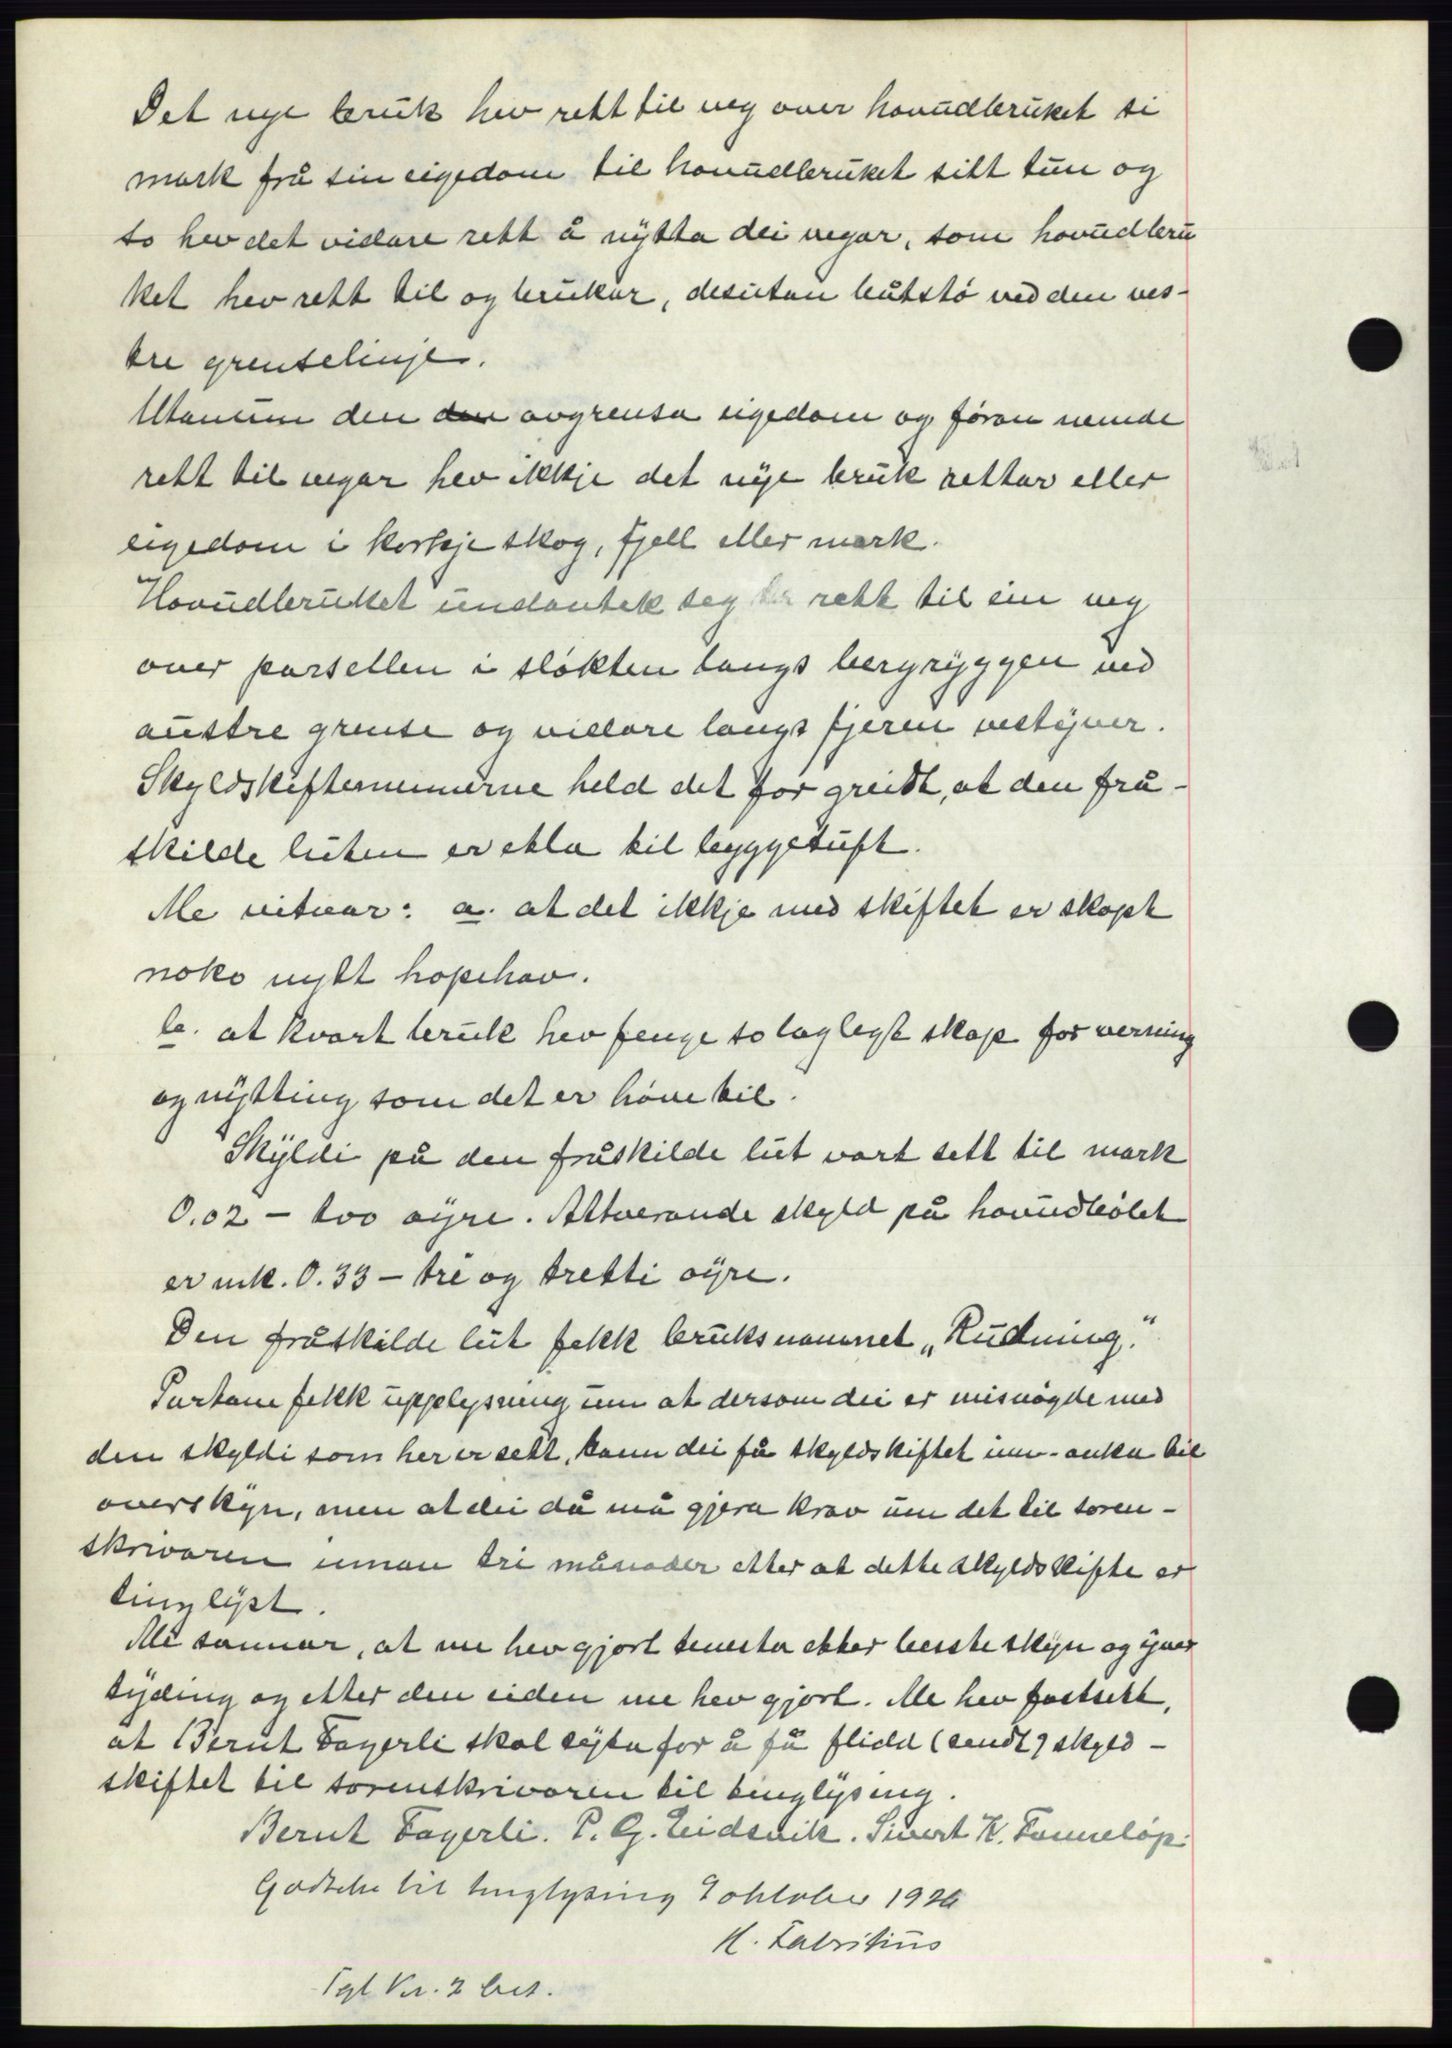 Det nye bruk hev rett til veg over hovudbruket si
mark frå sin eigedom til hovudbruket sitt tun og
so hev det vidare rett å nytta dei vegar, som hovudbru
ket hev rett til og brukar, desutan båtstø ved den ves-
tre grenselinje.
Utanum den den avgrensa eigedom og føran nemde
rett til vegar hev ikkje det nye bruk rettar eller
eigedom i korkje skog, fjell eller mark.
Hovudbruket undantek seg rett til ein veg
over parsellen i sløkten langs bergryggen ved
austre grense og vidare langs fjeren vestyver.
Skyldskiftemennerne held det for greidt, at den frå-
skilde luten er etla til byggetuft.
Me vitnar: a. at det ikkje med skiftet er skapt
noko nytt hopehav.
b. at kvart bruk hev fenge so laglegt skap for verning
og nytting som det er høve til.
Skyldi på den fråskilde lut vart sett til mark
0.02 - tvo øyre. Attverande skyld på hovudbølet
er mk. 0.33 - tri og tretti øyre.
Den fråskilde lut fekk bruksnamnet „Rudning."
Partane fekk upplysning um at dersom dei er misnøgde med
den skyldi som her er sett, kann dei få skyldskiftet inn-anka til
overskyn, men at dei då må gjera krav um det til soren-
skrivaren innan tri månader etter at dette skyldskifte er
tinglyst.
Me sannar, at me hev gjort tenesta etter beste skyn og yver
tyding og etter den eiden me hev gjort. Me hev fastsett,
at Bernt Fagerli skal syta for å få flidd (sendt) skyld-
skiftet til sorenskrivaren til tinglysing.
Bernt Fagerli. P. G. Eidsvik. Sivert K. Fanneløp.
Godteke til tinglysing 9 oktober 1926
K. Fabritius
Tgl Kr. 2 bet.